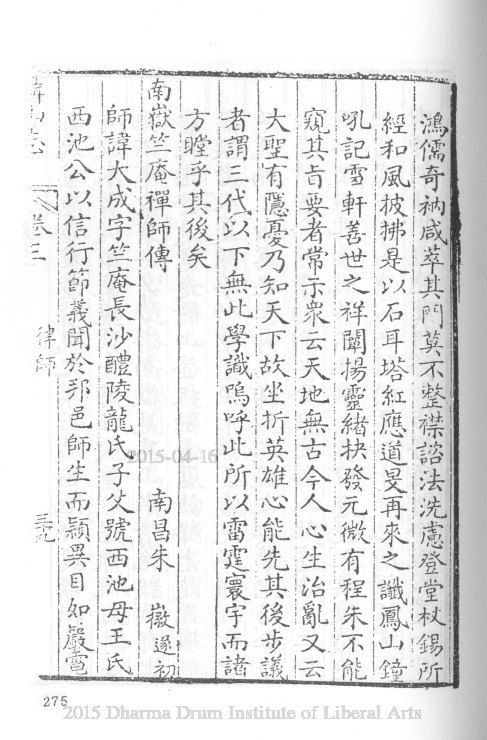 鴻儒奇衲咸萃其門莫不整襟談法洗慮登堂杖錫所
經和風披拂是以石耳塔紅應道旻再來之讖鳳山鐘
吼記雪軒善世之祥闡揚靈緒抉發元微有程朱不能
窺其旨要者常示衆云天地無古今人心生治亂又云
大聖有隱憂乃知天下故坐折英雄心能先其後步議
者謂三代以下無此學識嗚呼此所以雷霆寰宇而諸
方瞠乎其後矣
南嶽竺庵禪師傳
南昌朱 徽遂初
師諱大成字竺庵長沙醴陵龍氏子父號西池母王氏
西池公以信行節義聞於邦邑師生而穎異目如巖電
山志 卷三 律師
275
2015-04-16
2015 Dharma Drum Institute of Liberal Arts